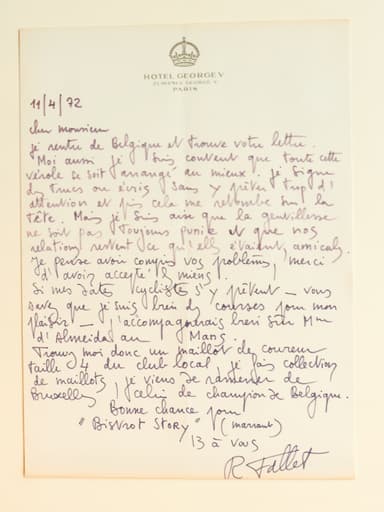 HOTEL GEORGE V
PARIS
11/4/72
Cher monsieur
je rentre de Belgique et trouve votre lettre.
Moi aussi je suis content que toute cette
vérole se soit arrangé au mieux. Je signe
des trucs ou écris sans y prêter trop d'
attention et puis cela me retombe sur la
tête. Mais je suis aise que la gentillesse
ne soit pas toujours punie et que nos
relations restent ce qu'elles étaient, amicales.
Je pense avoir compris vos problèmes, merci
d'avoir accepté miens.
Si mes dates cyclistes s'y prêtent _ vous
savez que je suis des courses pour mon
plaisir _ j'accompagnerais bien sûr Mme
d'Almeida au Mans.
Trouvez moi donc un maillot de coureur
taille 4 du club local, je fais collection
de maillots, je viens de ramener de
Bruxelles celui de champion de Belgique.
Bonne chance pour
"Bistrot Story" (marrant)
B à vous
R. Fallet